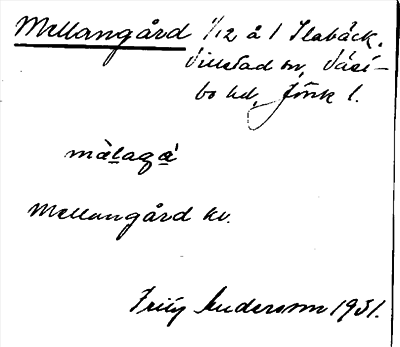 Mellangård 1/12 å 1 Slabäck,
Villstad sn, Väst-
bo hd, Jönk l.
mà̀lagá̀
Mellangård kv.
Fritz Anderson 1931.